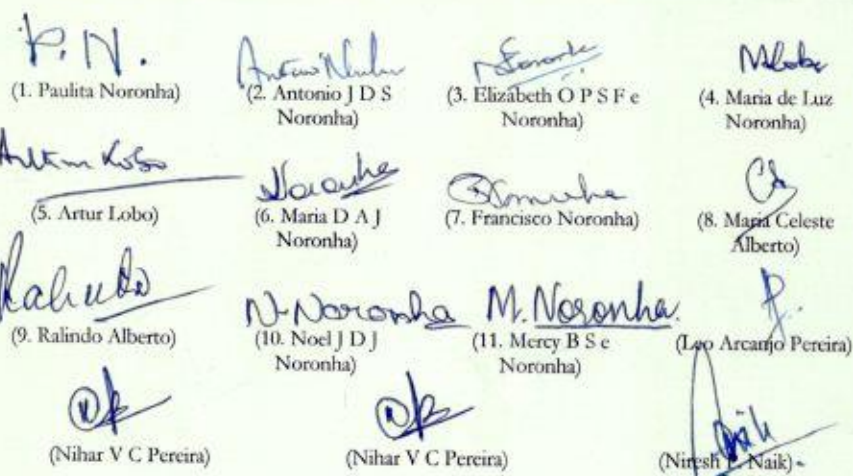 P. N.
(1. Paulita Noronha)
(2. Antonio J D S
Noronha)
(3. Elizabeth O P S F e
Noronha)
(4. Maria de Luz
Noronha)
Artur Lobo
(5. Artur Lobo)
Noronha
(6. Maria D A J
Noronha)
(7. Francisco Noronha)
(8. Maria Celeste
Alberto)
(9. Ralindo Alberto)
N. Noronha
(10. Noel J D J
Noronha)
M. Noronha.
(11. Mercy B S e
Noronha)
(Leo Arcanjo Pereira)
(Nihar V C Pereira)
(Nihar V C Pereira)
(Niresh Naik)